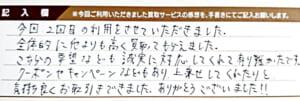 記入欄
※今回ご利用いただきました買取サービスの感想を、手書きにてご記入お願いします。
今回2回目の利用をさせていただきました。
全体的に他よりも高く買取ってもらえました。
こちらの要望なども誠実に対応してくれて有り難かったです。
クーポンやキャンペーンなどもあり上乗せしてくれたりと
気持ち良くお取引きできました。ありがとうございました!!